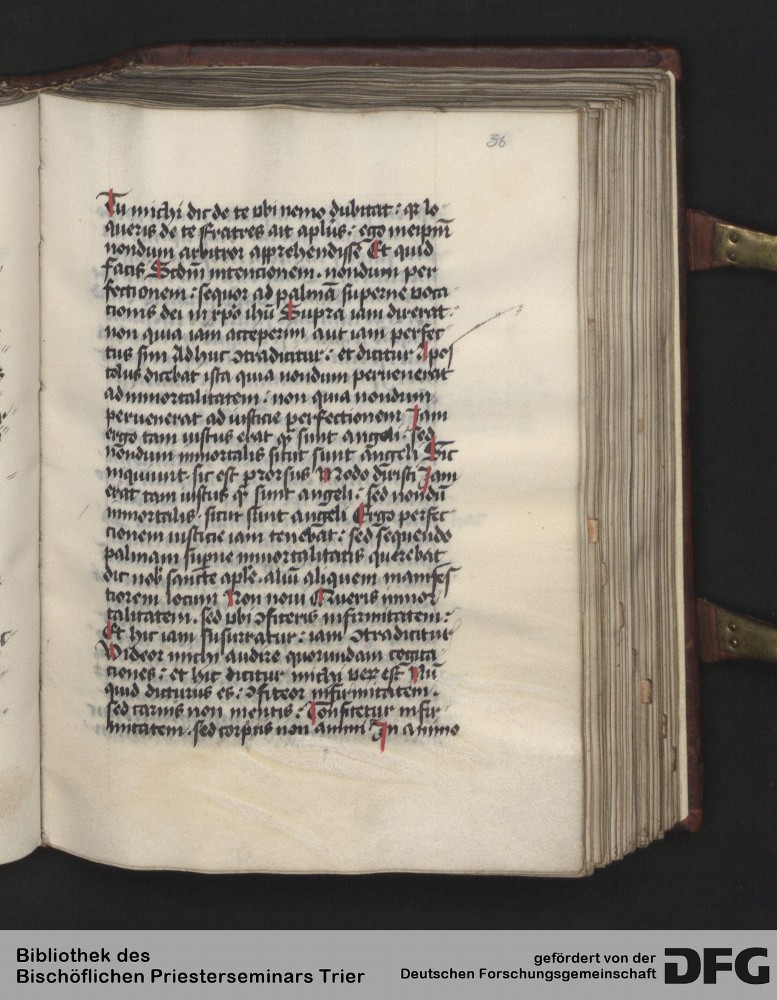 36
Tu michi dic de te vbi nemo dubitat : qr lo
queris de te Fratres ait aplus : ego meipm
nondum arbitror apprehendisse Et quid
facis Scdm intencionem . nondum per
fectionem : sequor ad palmā superne voca
tionis dei in xpo ihu Supra iam dixerat .
non quia iam acceperim aut iam perfec
tus sim Adhuc ɔtradicitur : et dicitur Apos
tolus dicebat ista quia nondum peruenerat
ad immortalitatem : non quia nondum
peruenerat ad iusticie perfectionem Jam
ergo tam iustus erat qr sunt angeli : sed
nondum immortalis sicut sunt angeli Sic
inquiunt . sic est prorsus Modo dixisti Jam
erat tam iustus qr sunt angeli : sed nondū
immortalis . sicut sunt angeli Ergo perfec
cionem iusticie iam tenebat : sed sequendo
palmam supne immortalitatis querebat
dic nob sancte aple . aliū aliquem manifes
tiorem locum Non noui Queris immor
talitatem . sed vbi ɔfiteris infirmitatem :
Et hic iam susurratur : iam ɔtradicitur
Uideor michi audire quorundam cogita
ciones : et hic dicitur michi est
quid dicturus es : ɔfiteor infirmitatem .
sed carnis non mentis : Confitetur infir
mitatem . sed corpis non animi In animo
Bibliothek des
Bischöflichen Priesterseminars Trier
gefördert von der
Deutschen Forschungsgemeinschaft
DFG